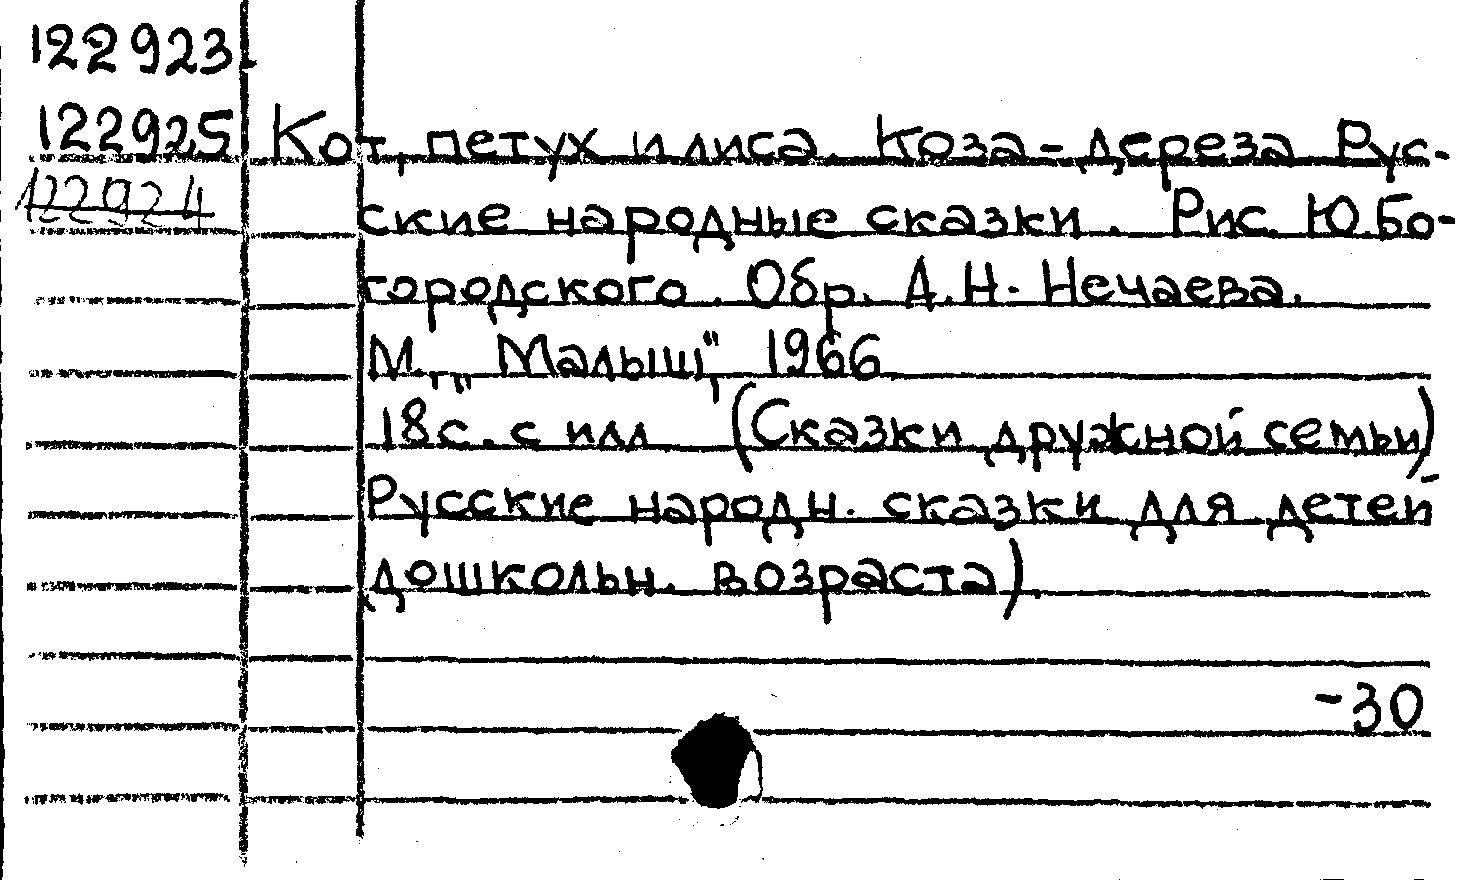 122923.
122925 Кот, петух и лиса. Коза-дереза Рус-
122924 ские народные сказки. Рис. Ю.Бо-
городского. Обр. А.Н. Нечаева.
М., „Малыш", 1966
18с. с илл (Сказки дружной семьи)
Русские народн. сказки для детей
дошкольн. возраста).
-30